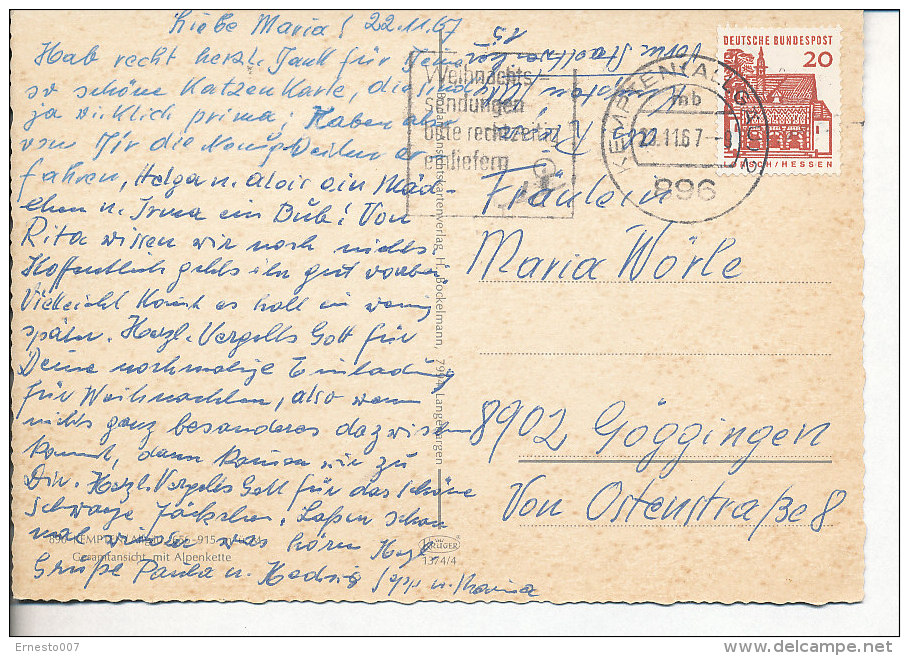 Liebe Maria! 22.11.67
Hab recht herzl. Dank für Deine
so schöne Katzenkarte, die sind
ja wirklich prima! Haben also
von Dir die
fahren, Helga u. Alois ein Mäd-
chen u. Irma ein Bub! Von
Rita wissen wir noch nichts.
Hoffentlich gehts ihr gut vorbei
Vielleicht kommt es halt ein wenig
später. Herzl. Vergelts Gott für
Deine nochmalige Einladung
für Weihnachten, also wenn
nichts ganz besonderes dazwischen
kommt, dann kommen wir zu
Dir. Herzl. Vergelts Gott für das schöne
schwarze Jäckchen. Laßen schon
mal wieder was hören Herzl.
Grüße Paula u. Hedwig Sepp u. Maria
Weihnachts-
sendungen
bitte rechtzeitig
einliefern
KEMPTEN (ALLGÄU)
mb
23.11.67
896
DEUTSCHE BUNDESPOST
20
LORSCH/HESSEN
Fräulein
Maria Wörle
8902 Göggingen
Von Ostenstraße 8
Ansichtskartenverlag H. Bockelmann, 7994 Langenargen
Gesamtansicht mit Alpenkette
KRÜGER
1374/4
Ernesto007
delcampe.net